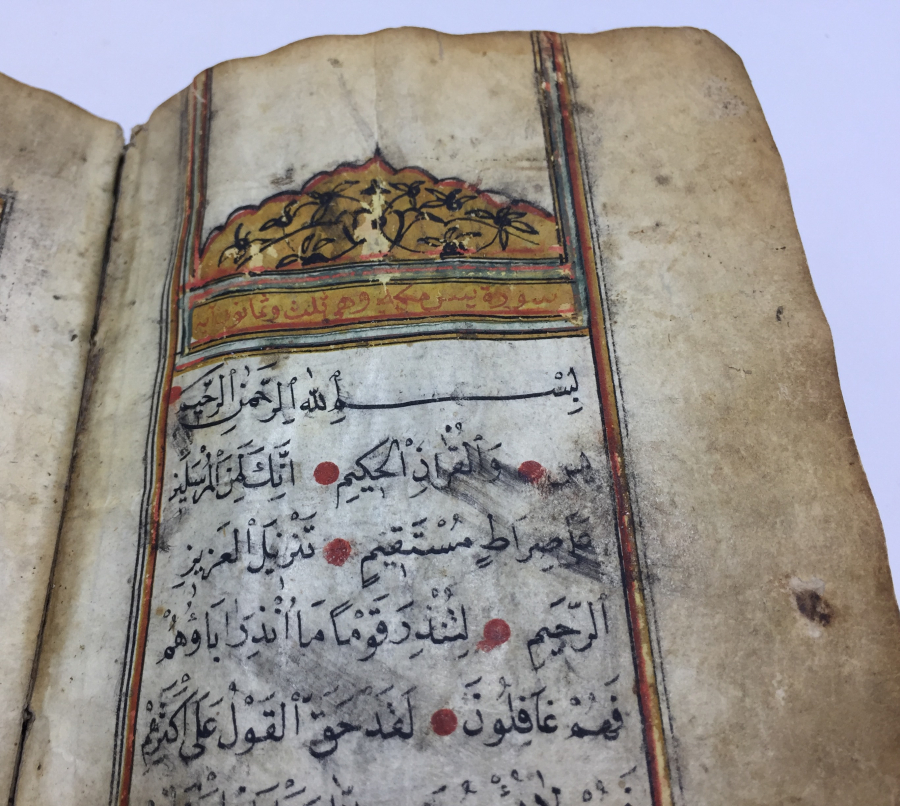 سورة يس مكية وهي ثلث وثمانون اية
بِسْمِ اللهِ الرَّحْمٰنِ الرَّحِيمِ
يس وَالْقُرْاٰنِ الْحَكِيمِ اِنَّكَ لَمِنَ الْمُرْسَلِينَ
عَلٰى صِرَاطٍ مُسْتَقِيمٍ تَنْزِيلَ الْعَزِيزِ
الرَّحِيمِ لِتُنْذِرَ قَوْمًا مَا اُنْذِرَ اٰبَاؤُهُمْ
فَهُمْ غَافِلُونَ لَقَدْ حَقَّ الْقَوْلُ عَلٰى اَكْثَرِهِمْ